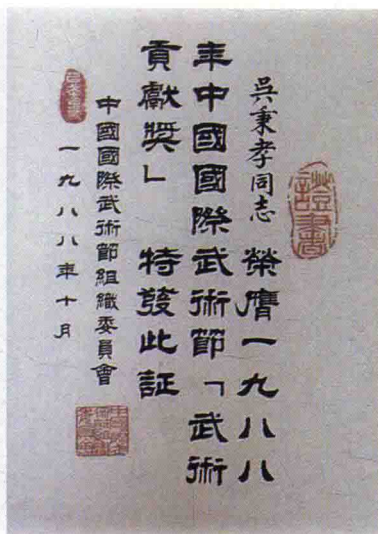 證書
吳秉孝同志 榮膺一九八八
年中國國際武術節「武術
貢獻獎」 特發此証
中國國際武術節組織委員會
一九八八年十月